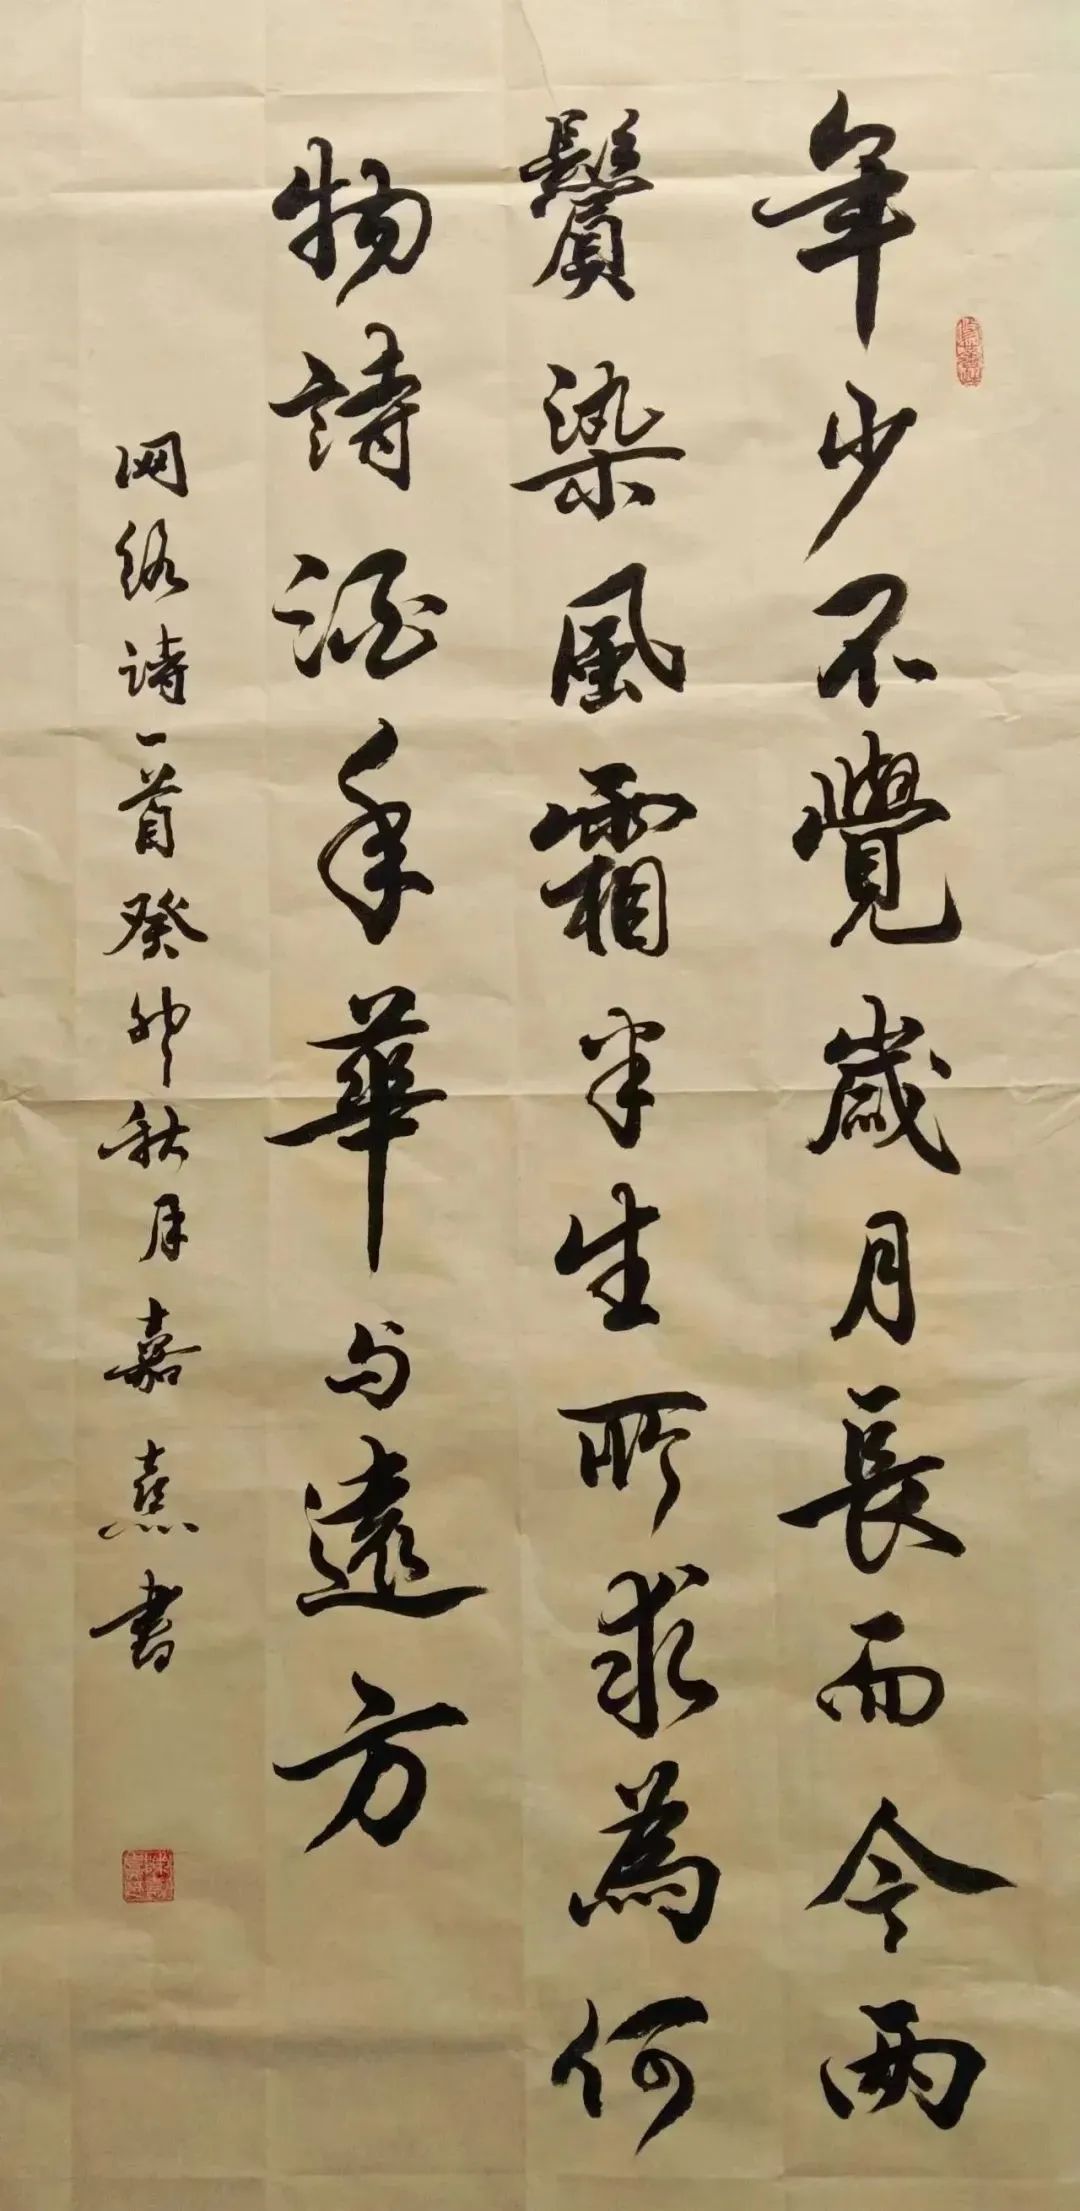 年少不覺歲月長而今兩
鬢染風霜半生所求為何
物詩酒年華与遠方
网络诗一首癸卯秋月嘉熹书